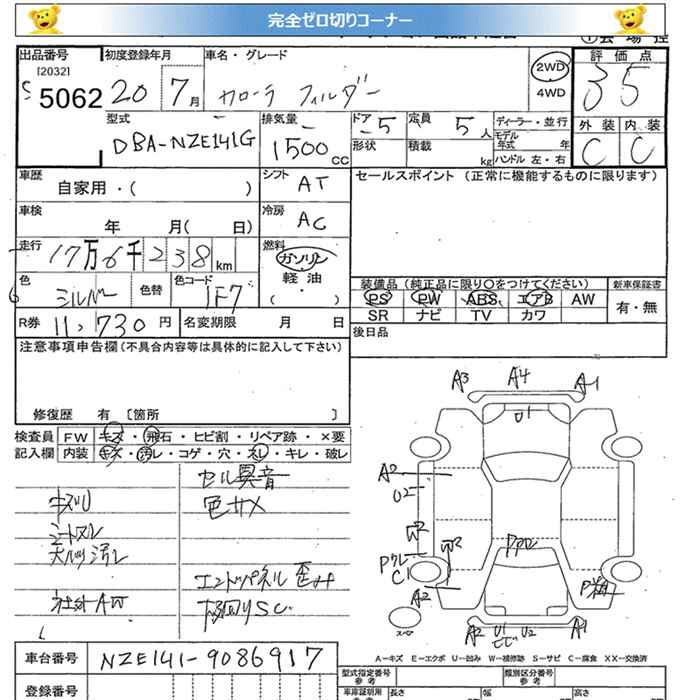 完全ゼロ切りコーナー
出品番号 初度登録年月 車名・グレード 2WD 評価点
[2032] 5062 20 7月 カローラ フィルダー 4WD 3.5
型式 排気量 ドア 定員 ディーラー・並行 外装 内装
DBA-NZE141G 1500CC 5 5人 モデル年式 年 C C
形状 積載 kg ハンドル 左・右
車歴 シフト セールスポイント (正常に機能するものに限ります)
自家用・( ) AT
車検 冷房
年 月( 日) AC
走行 燃料
17万6千238km ガソリン
軽油
・( )
色 色替 色コード 装備品 (純正品に限り○をつけてください) 新車保証書
シルバー 1F7 PS PW ABS エアB AW 有・無
SR ナビ TV カワ
R券 11,730円 名変期限 月 日 後日品
注意事項申告欄(不具合内容等は具体的に記入して下さい)
修復歴 有 〔箇所 〕
検査員 FW キズ・飛石・ヒビ割・リペア跡・×要
記入欄 内装 キズ・汚レ・コゲ・穴・スレ・キレ・破レ
セル異音
キズU 色サメ
シートスレ
天バリ汚レ
エンドパネル歪み
下廻りSC
A3 A4 A1
U1
A2
U2
W2
W2
C1
A2
A2 U1 U2 A1
スペア
A-キズ E-エクボ U-凹み W-補修跡 S-サビ C-腐食 XX-交換済
車台番号 NZE141-9086917
型式指定番号 類別区分番号
登録番号 参考 参考
車庫証明用 長さ 幅 高さ